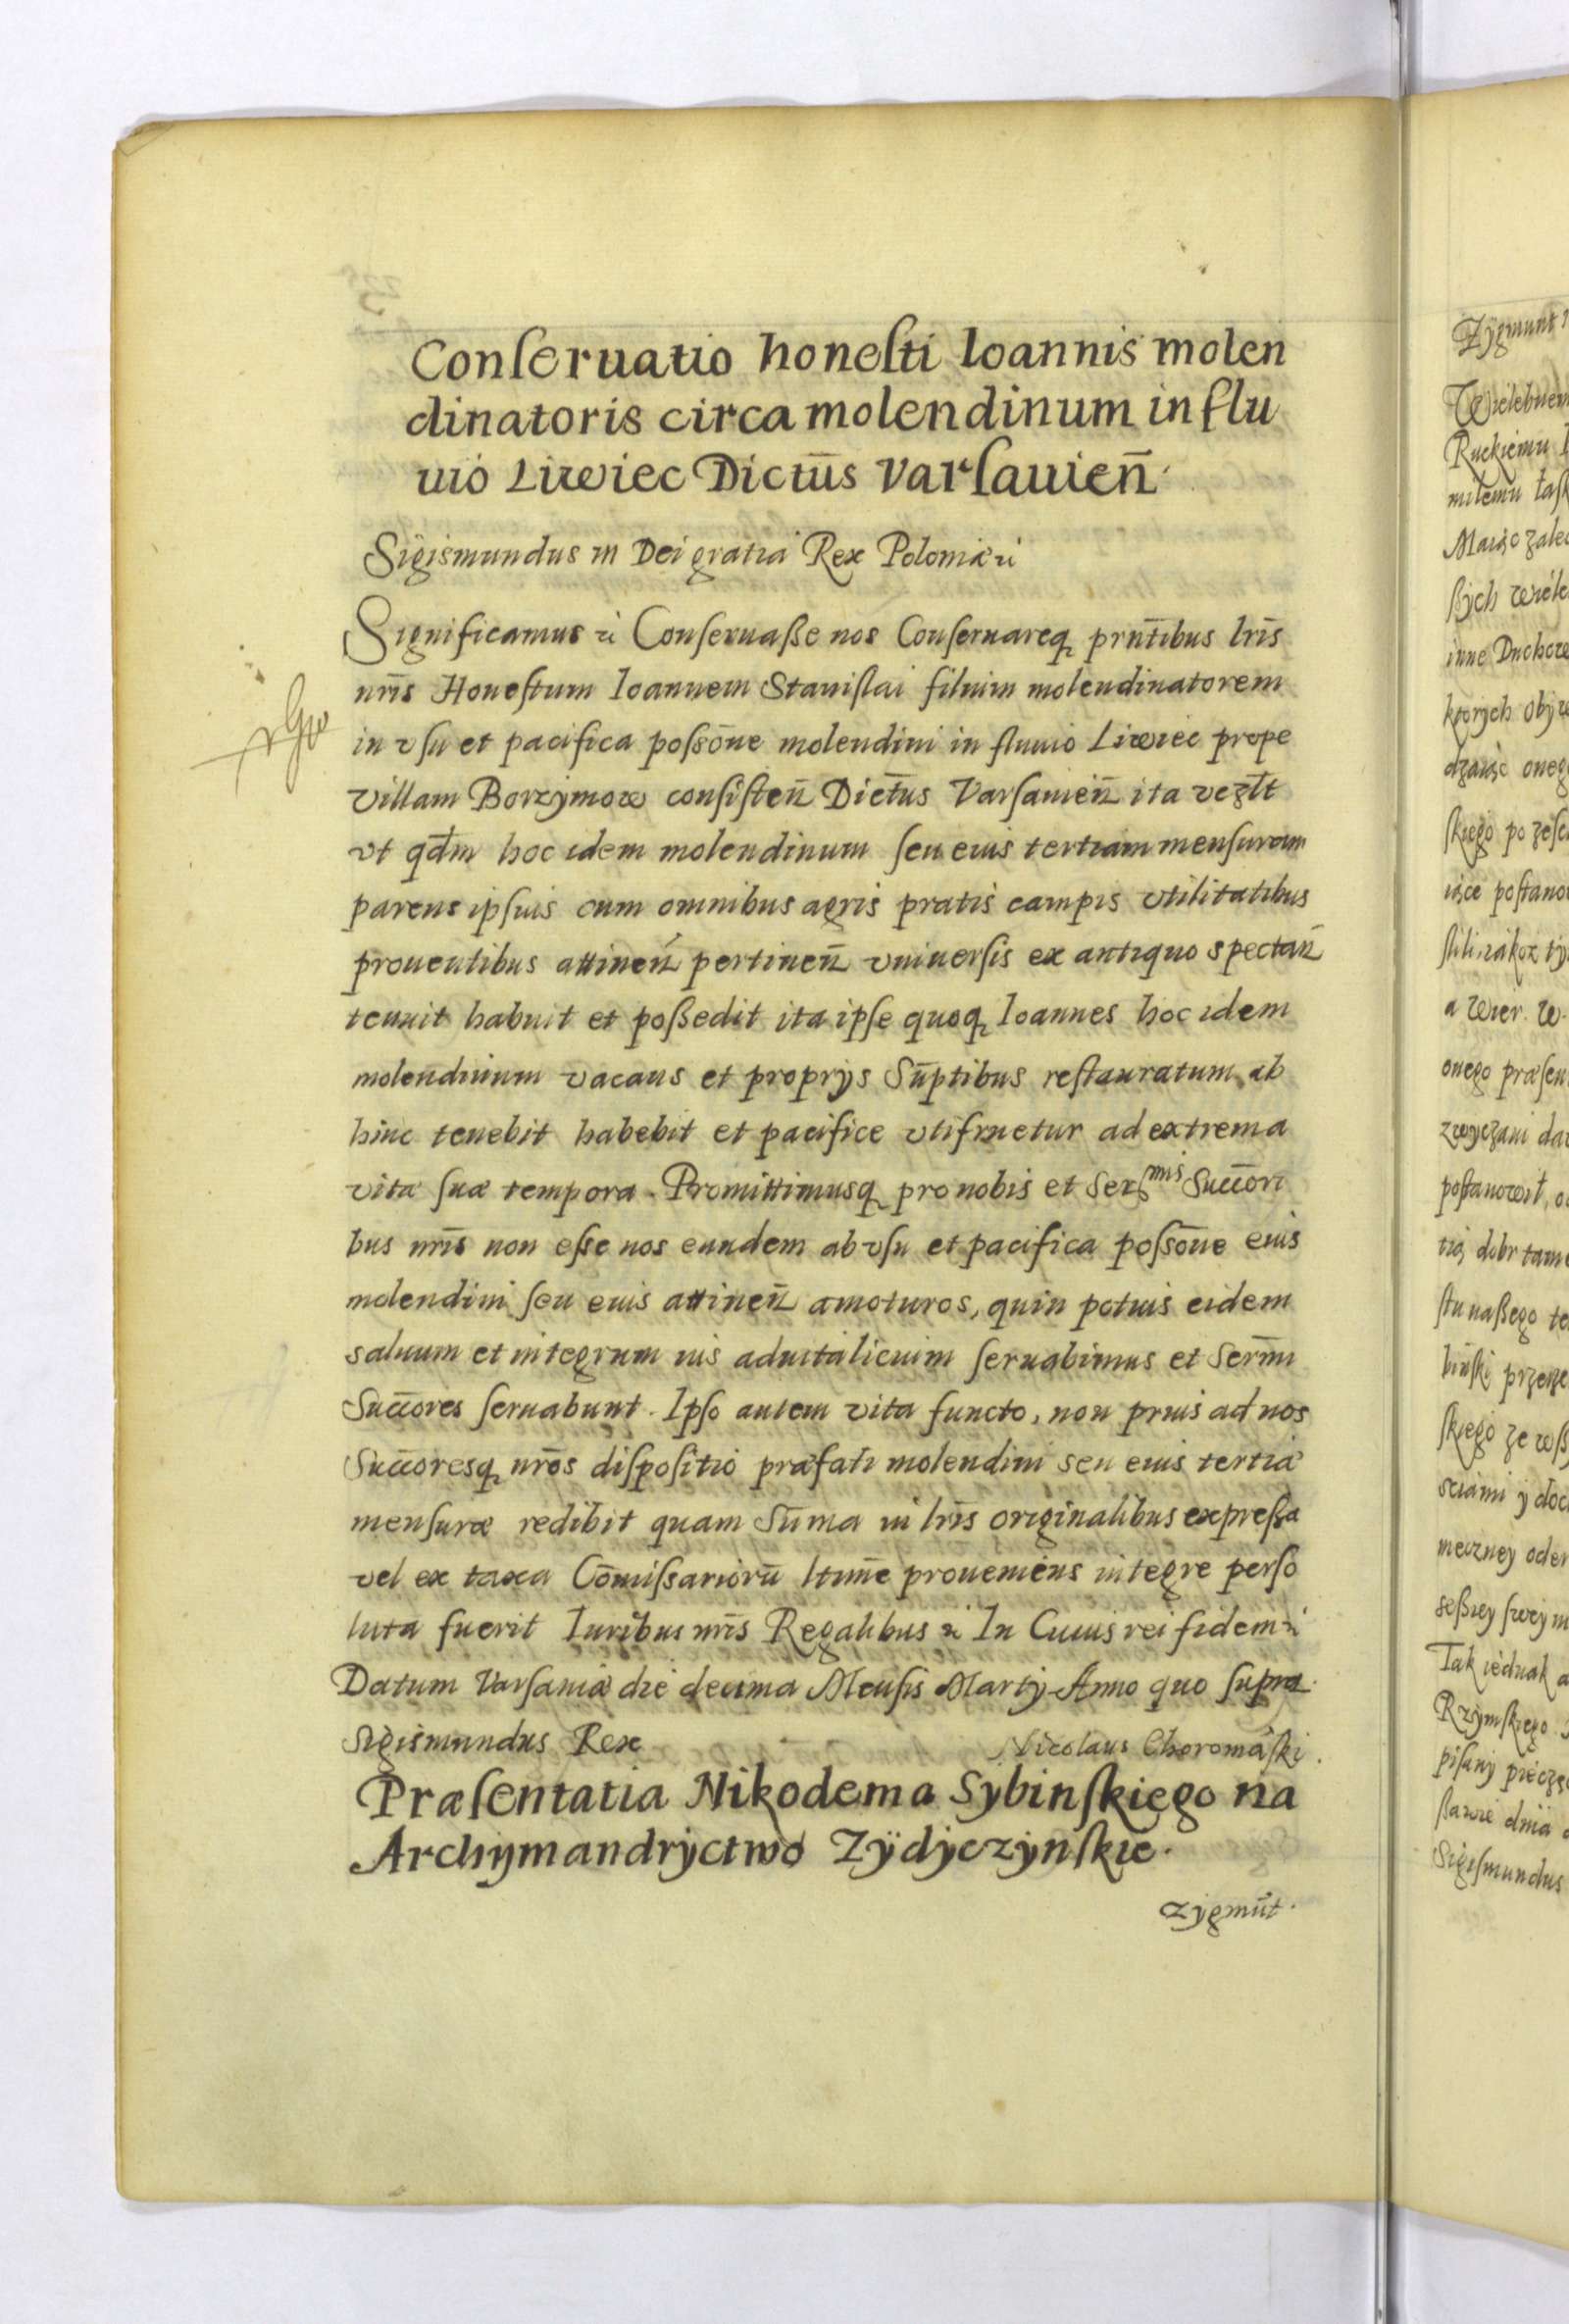 Conſeruatio honeſti Ioannis molen
dinatoris circa molendinum in flu
uio Liwiec Dictūs Varſauien̄.
Sigismundus III Dei gratia Rex Poloniæ ꝛc
Significamus ꝛc Conſeruaße nos Conſeruareq prn̄tibus lr̄is
nr̄is Honeſtum Ioannem Staniſlai filium molendinatorem
in vſu et pacifica poſſōne molendini in fluuio Liwiec prope
villam Borzymow conſiſten̄ Dict̄us Varſauien̄ ita
vt qd̄m hoc idem molendinum ſeu eius tertiam menſuram
parens ipſuis cum omnibus agris pratis campis vtilitatibus
prouentibus attinen̄ pertinen̄ vniuerſis ex antiquo spectan̄
tenuit habuit et poßedit ita ipſe quoq Ioannes hoc idem
molendinum vacans et proprijs Sūptibus reſtauratum ab
hinc tenebit habebit et pacifice vtifruetur ad extrema
vitæ ſuæ tempora. Promittimusq pro nobis et Ser^mis Succ̄ori
bus nr̄is non eſſe nos eundem ab vſu et pacifica poſſōne eius
molendini ſeu eius attinen̄ amoturos, quin potius eidem
saluum et integrum ius aduitalicium ſeruabimus et Serm̄i
Succ̄ores ſeruabunt. Ipſo autem vita functo, non prius ad nos
Succ̄oresq nr̄os diſpoſitio præfati molendini seu eius tertiæ
menſuræ redibit quam Sūma in lr̄is originalibus expreſſa
vel ex taxa Cōmiſſariorū ltim̄e proueniens integre perſo
luta fuerit Iuribus nr̄is Regalibus ꝛc In Cuius rei fidem ꝛc
Datum Varſauiæ die decima Menſis Martij Anno quo ſupra.
Sigismundus Rex Nicolaus Choromāſki.
Præſentatia Nikodema Sybinſkiego na
Archymandryctwo Zÿdyczynſkie.
Zygmūt.
Zygmunt
Ruckiemu
ktorych
onego
Tak iednak
Rzymſkiego
Sigiſmundus